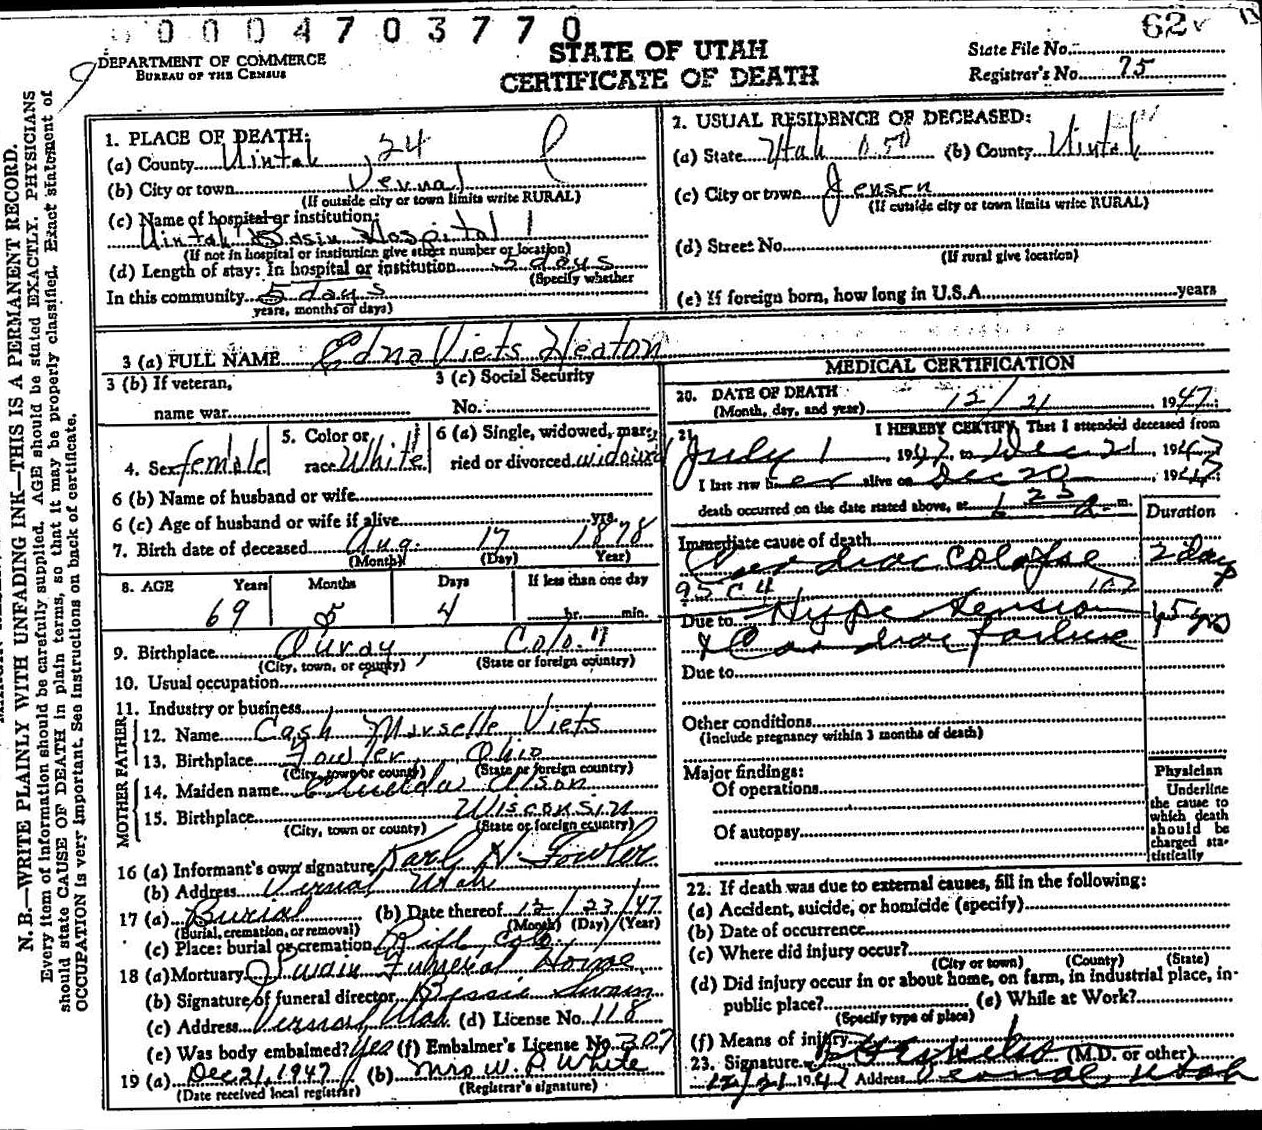 00004703770
62
DEPARTMENT OF COMMERCE
BUREAU OF THE CENSUS
STATE OF UTAH
CERTIFICATE OF DEATH
State File No.
Registrar's No. 75
N. B.—WRITE PLAINLY WITH UNFADING INK—THIS IS A PERMANENT RECORD.
Every item of information should be carefully supplied. AGE should be stated EXACTLY. PHYSICIANS
should state CAUSE OF DEATH in plain terms, so that it may be properly classified. Exact statement of
OCCUPATION is very important. See instructions on back of certificate.
1. PLACE OF DEATH:
(a) County Uintah 24
(b) City or town Vernal
(If outside city or town limits write RURAL)
(c) Name of hospital or institution:
Uintah Basin Hospital 1
(If not in hospital or institution give street number or location)
(d) Length of stay: In hospital or institution 5 days
(Specify whether
In this community 5 days
years, months or days)
2. USUAL RESIDENCE OF DECEASED:
(a) State Utah (b) County Uintah
(c) City or town Jensen
(If outside city or town limits write RURAL)
(d) Street No.
(If rural give location)
(e) If foreign born, how long in U.S.A. years
3 (a) FULL NAME Edna Viets Heaton
3 (b) If veteran,
name war
3 (c) Social Security
No.
4. Sex female
5. Color or
race White
6 (a) Single, widowed, mar-
ried or divorced widowed
6 (b) Name of husband or wife
6 (c) Age of husband or wife if alive yrs.
7. Birth date of deceased Aug. 17 1878
(Month) (Day) Year)
8. AGE Years Months Days If less than one day
69 4 hr. min.
9. Birthplace Ouray, Colo.
(City, town, or county) (State or foreign country)
10. Usual occupation
11. Industry or business
FATHER
12. Name Cash Marselle Viets
13. Birthplace Fowler Ohio
(City, town or county) (State or foreign country)
MOTHER
14. Maiden name Olson
15. Birthplace Wisconsin
(City, town or county) (State or foreign country)
16 (a) Informant's own signature Karl N. Fowler
(b) Address Vernal Utah
17 (a) Burial (b) Date thereof 12/23/47
(Burial, cremation, or removal) (Month) (Day) (Year)
(c) Place: burial or cremation Rifle Colo
18 (a) Mortuary Swain Funeral Home
(b) Signature of funeral director Bessie Swain
(c) Address Vernal Utah (d) License No. 118
(e) Was body embalmed? Yes (f) Embalmer's License No. 307
19 (a) Dec 21, 1947 (b) Mrs W. P. White
(Date received local registrar) (Registrar's signature)
MEDICAL CERTIFICATION
20. DATE OF DEATH
(Month, day, and year) 12/21 1947
21. I HEREBY CERTIFY, That I attended deceased from
July 1, 1947, to Dec 21, 1947
I last saw her alive on Dec 20, 1947
death occurred on the date stated above, at 1 25 a. m.
Duration
Immediate cause of death
Cardiac Colapse 2 days
95 C 4 107
Due to Hypertension 15 yrs
& Cardiac failure
Due to
Other conditions
(Include pregnancy within 3 months of death)
Major findings:
Of operations
Of autopsy
Physician
Underline
the cause to
which death
should be
charged sta-
tistically
22. If death was due to external causes, fill in the following:
(a) Accident, suicide, or homicide (specify)
(b) Date of occurrence
(c) Where did injury occur?
(City or town) (County) (State)
(d) Did injury occur in or about home, on farm, in industrial place, in
public place? (e) While at Work?
(Specify type of place)
(f) Means of injury
23. Signature (M.D. or other)
12/21 1947 Address Vernal, Utah